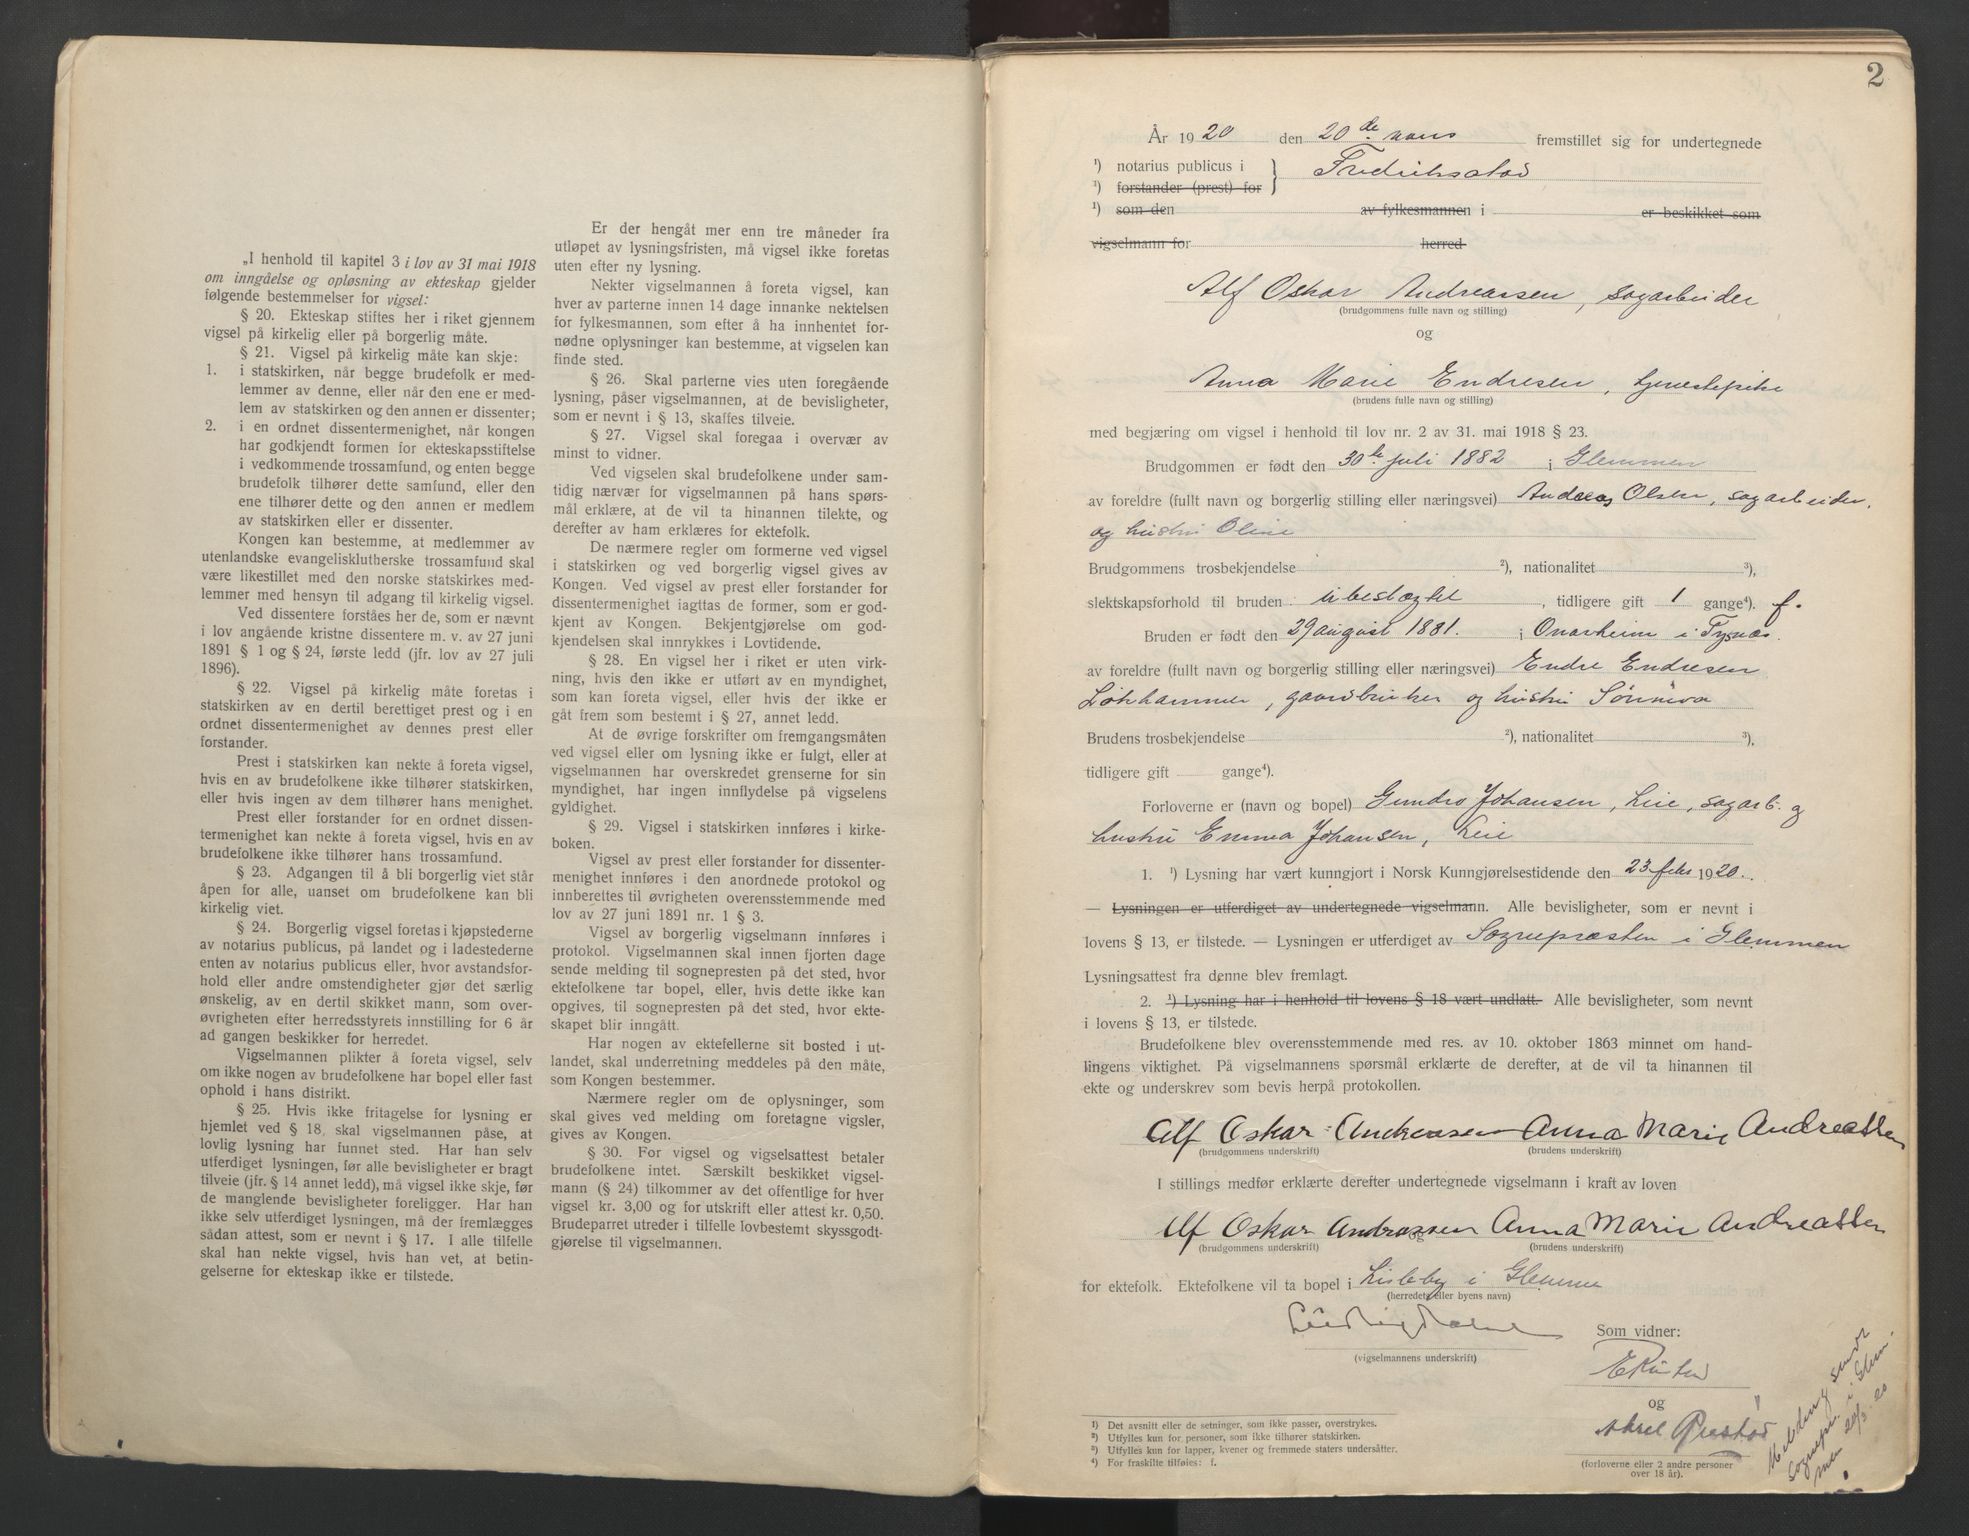 „I henhold til kapitel 3 i lov av 31 mai 1918
om inngåelse og opløsning av ekteskap gjelder
følgende bestemmelser for vigsel:
§ 20. Ekteskap stiftes her i riket gjennem
vigsel på kirkelig eller på borgerlig måte.
§ 21. Vigsel på kirkelig måte kan skje:
1. i statskirken, når begge brudefolk er med-
lemmer av denne, eller når den ene er med-
lem av statskirken og den annen er dissenter;
2. i en ordnet dissentermenighet, når kongen
har godkjendt formen for ekteskapsstiftelse
i vedkommende trossamfund, og enten begge
brudefolk tilhører dette samfund, eller den
ene tilhører dette og den annen er medlem
av statskirken eller er dissenter.
Kongen kan bestemme, at medlemmer av
utenlandske evangelisklutherske trossamfund skal
være likestillet med den norske statskirkes med-
lemmer med hensyn til adgang til kirkelig vigsel.
Ved dissentere forståes her de, som er nævnt
i lov angående kristne dissentere m. v. av 27 juni
1891 § 1 og § 24, første ledd (jfr. lov av 27 juli
1896).
§ 22. Vigsel på kirkelig måte foretas i
statskirken av en dertil berettiget prest og i en
ordnet dissentermenighet av dennes prest eller
forstander.
Prest i statskirken kan nekte å foreta vigsel,
hvis en av brudefolkene ikke tilhører statskirken,
eller hvis ingen av dem tilhører hans menighet.
Prest eller forstander for en ordnet dissen-
termenighet kan nekte å foreta vigsel, hvis en av
brudefolkene ikke tilhører hans trossamfund.
§ 23. Adgangen til å bli borgerlig viet står
åpen for alle, uanset om brudefolkene kan bli
kirkelig viet.
§ 24. Borgerlig vigsel foretas i kjøpstederne
av notarius publicus, på landet og i ladestederne
enten av notarius publicus eller, hvor avstandsfor-
hold eller andre omstendigheter gjør det særlig
ønskelig, av en dertil skikket mann, som over-
øvrigheten efter herredsstyrets innstilling for 6 år
ad gangen beskikker for herredet.
Vigselmannen plikter å foreta vigsel, selv
om ikke nogen av brudefolkene har bopel eller fast
ophold i hans distrikt.
§ 25. Hvis ikke fritagelse for lysning er
hjemlet ved § 18, skal vigselmannen påse, at
lovlig lysning har funnet sted. Har han selv
utferdiget lysningen, før alle bevisligheter er bragt
tilveie (jfr. § 14 annet ledd), må vigsel ikke skje, før
de manglende bevisligheter foreligger. Har han
ikke selv utferdiget lysningen, må der fremlægges
sådan attest, som er nevnt i § 17. I alle tilfelle
skal han nekte vigsel, hvis han vet, at betin-
gelserne for ekteskap ikke er tilstede.
Er der hengåt mer enn tre måneder fra
utløpet av lysningsfristen, må vigsel ikke foretas
uten efter ny lysning.
Nekter vigselmannen å foreta vigsel, kan
hver av parterne innen 14 dage innanke nektelsen
for fylkesmannen, som efter å ha innhentet for-
nødne oplysninger kan bestemme, at vigselen kan
finde sted.
§ 26. Skal parterne vies uten foregående
lysning, påser vigselmannen, at de bevisligheter,
som er nevnt i § 13, skaffes tilveie.
§ 27. Vigsel skal foregaa i overvær av
minst to vidner.
Ved vigselen skal brudefolkene under sam-
tidig nærvær for vigselmannen på hans spørs-
mål erklære, at de vil ta hinannen tilekte, og
derefter av ham erklæres for ektefolk.
De nærmere regler om formerne ved vigsel
i statskirken og ved borgerlig vigsel gives av
Kongen. Ved vigsel av prest eller forstander for
dissentermenighet iagttas de former, som er god-
kjent av Kongen. Bekjentgjørelse om god-
kjendelsen skal innrykkes i Lovtidende.
§ 28. En vigsel her i riket er uten virk-
ning, hvis den ikke er utført av en myndighet,
som kan foreta vigsel, eller hvis der ikke er
gåt frem som bestemt i § 27, annet ledd.
At de øvrige forskrifter om fremgangsmåten
ved vigsel eller om lysning ikke er fulgt, eller at
vigselmannen har overskredet grenserne for sin
myndighet, har ingen innflydelse på vigselens
gyldighet.
§ 29. Vigsel i statskirken innføres i kirke-
boken.
Vigsel av prest eller forstander for dissenter-
menighet innføres i den anordnede protokol og
innberettes til øvrigheten overensstemmende med
lov av 27 juni 1891 nr. 1 § 3.
Vigsel av borgerlig vigselmann innføres i
protokol. Vigselmannen skal innen fjorten dage
sende melding til sognepresten på det sted, hvor
ektefolkene tar bopel, eller, hvis dette ikke kan
opgives, til sognepresten på det sted, hvor ekte-
skapet blir inngått.
Har nogen av ektefellerne sit bosted i ut-
landet, skal underretning meddeles på den måte,
som Kongen bestemmer.
Nærmere regler om de oplysninger, som
skal gives ved melding om foretagne vigsler,
gives av Kongen.
§ 30. For vigsel og vigselsattest betaler
brudefolkene intet. Særskilt beskikket vigsel-
mann (§ 24) tilkommer av det offentlige for hver
vigsel kr. 3,00 og for utskrift eller attest kr. 0,50.
Brudeparret utreder i tilfelle lovbestemt skyssgodt-
gjørelse til vigselmannen.
2
År 1920 den 20de mars fremstillet sig for undertegnede
¹) notarius publicus i } Fredriksstad
¹) forstander (prest) for
¹) som den av fylkesmannen i er beskikket som
vigselmann for herred
Alf Oskar Andreassen, sagarbeider
(brudgommens fulle navn og stilling)
og
Anna Marie Endresen, tjenestepike
(brudens fulle navn og stilling)
med begjæring om vigsel i henhold til lov nr. 2 av 31. mai 1918 § 23.
Brudgommen er født den 30te juli 1882 i Glemmen
av foreldre (fullt navn og borgerlig stilling eller næringsvei) Andreas Olsen, sagarbeider,
og hustru Oline
Brudgommens trosbekjendelse ²), nationalitet ³),
slektskapsforhold til bruden ubeslægtet, tidligere gift 1 gange⁴). f.
Bruden er født den 29 august 1881. i Onarheim i Tysnæs.
av foreldre (fullt navn og borgerlig stilling eller næringsvei) Endre Endresen
Løkhammer, gaardbruker og hustru Sønneva
Brudens trosbekjendelse ²), nationalitet ³),
tidligere gift gange⁴).
Forloverne er (navn og bopel) Gundro Johansen, Leie, sagarb. og
hustru Emma Johansen, Leie
1. ¹) Lysning har vært kunngjort i Norsk Kunngjørelsestidende den 23 febr 1920.
— Lysningen er utferdiget av undertegnede vigselmann. Alle bevisligheter, som er nevnt i
lovens § 13, er tilstede. — Lysningen er utferdiget av Sognepræsten i Glemmen
Lysningsattest fra denne blev fremlagt.
2. ¹) Lysning har i henhold til lovens § 18 vært undlatt. Alle bevisligheter, som nevnt
i lovens § 13, er tilstede.
Brudefolkene blev overensstemmende med res. av 10. oktober 1863 minnet om hand-
lingens viktighet. På vigselmannens spørsmål erklærte de derefter, at de vil ta hinannen til
ekte og underskrev som bevis herpå protokollen.
Alf Oskar Andreassen Anna Marie Andreassen
(brudgommens underskrift) (brudens underskrift)
I stillings medfør erklærte derefter undertegnede vigselmann i kraft av loven
Alf Oskar Andreassen Anna Marie Andreassen
(brudgommens underskrift) og (brudens underskrift)
for ektefolk. Ektefolkene vil ta bopel i Lisleby i Glemme
(herredets eller byens navn)
Som vidner:
(vigselmannens underskrift)
og
Aksel
(forloverne eller 2 andre personer
over 18 år).
¹) Det avsnitt eller de setninger, som ikke passer, overstrykes.
²) Utfylles kun for personer, som ikke tilhører statskirken.
³) Utfylles kun for lapper, kvener og fremmede staters undersåtter.
⁴) For fraskilte tilføies: f.
Melding sendt
sognepr. i Glem-
men 24/3 20